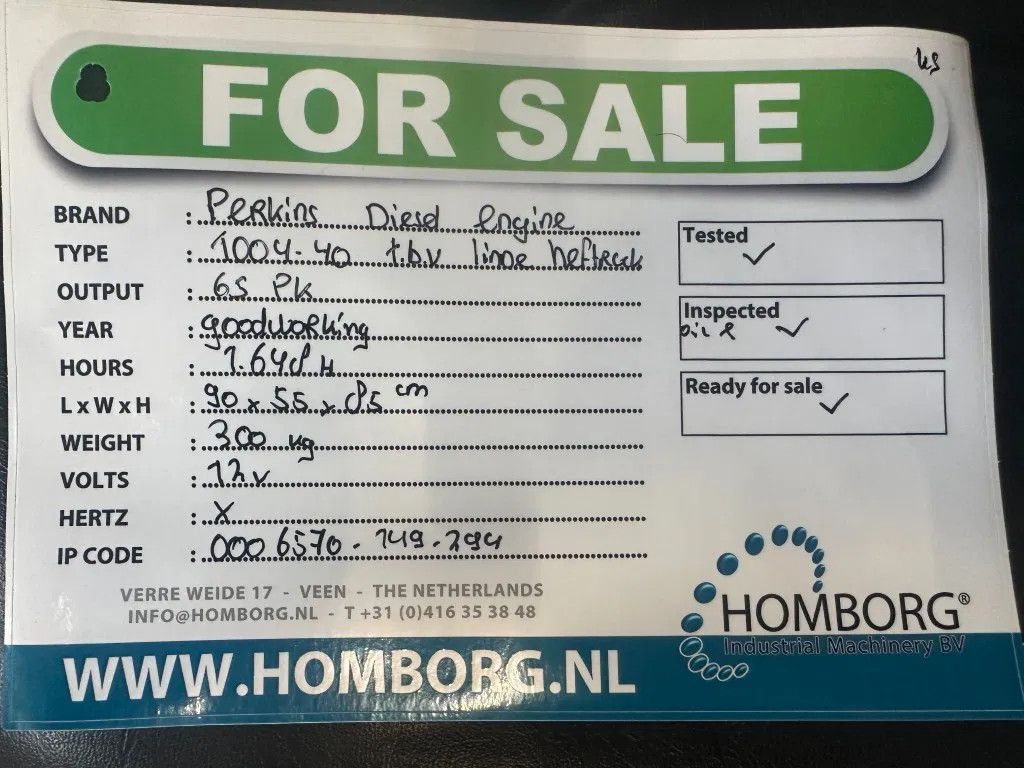 FOR SALE
BRAND : Perkins Diesel engine
TYPE : 1004-40 t.b.v linde heftruck
OUTPUT : 65 PK
YEAR : goodworking
HOURS : 1.648 H
L x W x H : 90 x 55 x 85 cm
WEIGHT : 300 kg
VOLTS : 12v
HERTZ : X
IP CODE : 000 6570 - 149 - 294
Tested ✓
Inspected ✓
Ready for sale ✓
VERRE WEIDE 17 - VEEN - THE NETHERLANDS
INFO@HOMBORG.NL - T +31 (0)416 35 38 48
HOMBORG®
Industrial Machinery BV
WWW.HOMBORG.NL